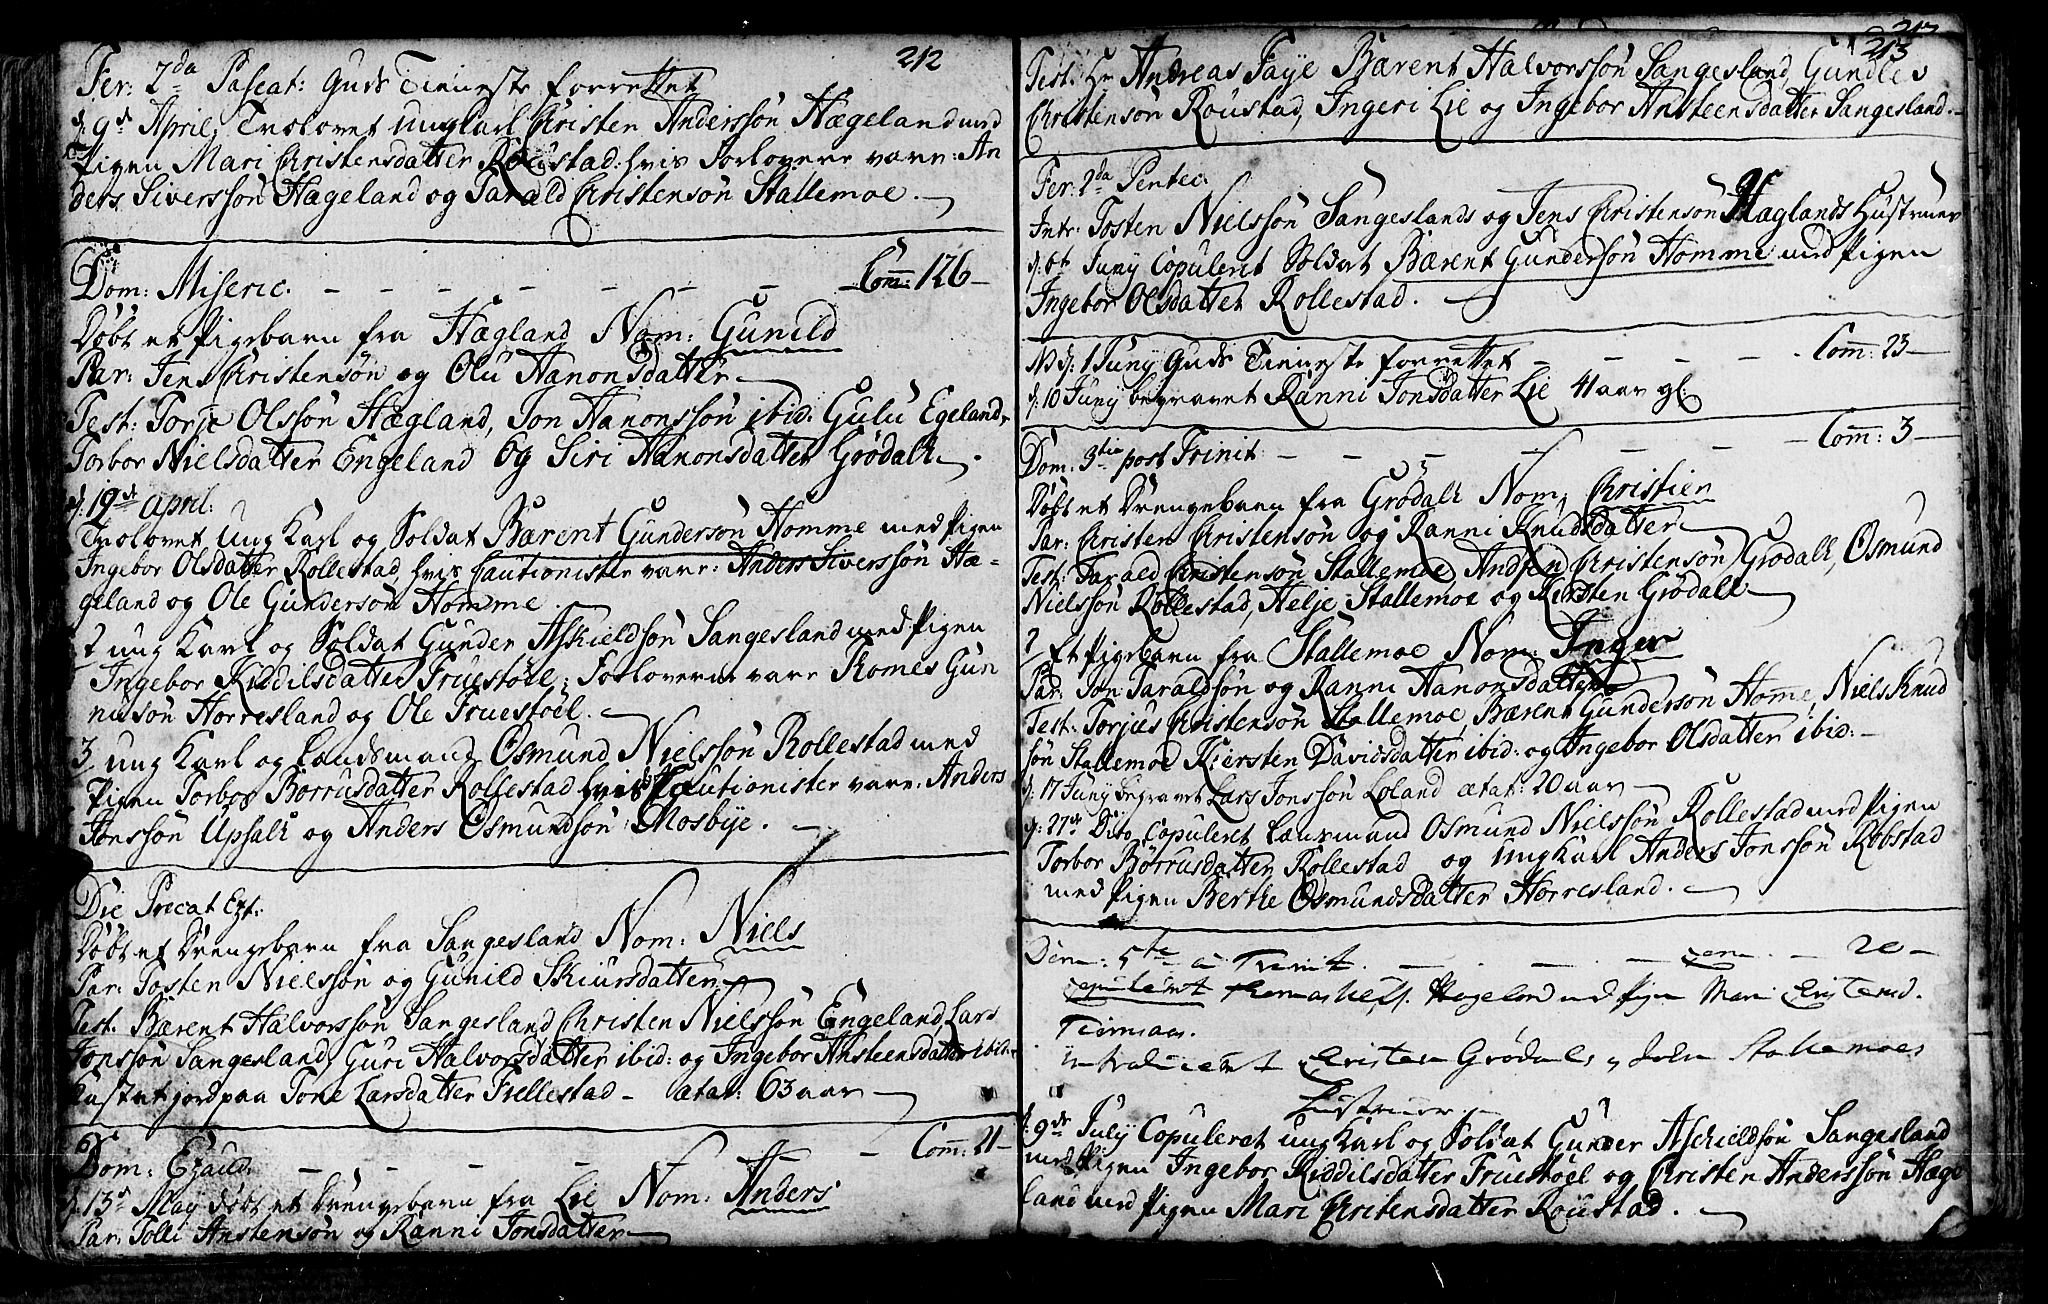 212
Fer: 2da Pascat: Guds Tieneste forrettet
d: 9de April, Trolovet ung Karl Christen Anderssøn Hægeland med
Pigen Mari Christensdatter Roustad, hvis Forlovere vare: An
ders Siverssøn Hægeland og Tarald Christensøn Stallemoe.
Dom: Miseric. – – – – – – – Com: 126 –
Døbt et Pigebarn fra Hægland Nom: Gunild
Par: Jens Christensøn og Olu Hanonsdatter
Test: Torje Olssøn Hægland, Jon Hanonssøn ibid: Gulu Egeland,
Torbor Nielsdatter Engeland Og Siri Hanonsdatter Grødalh.
d: 19de April:
Trolovet Ung Karl og Soldat Bærent Gundersøn Homme med Pigen
Ingebor Olsdatter Rollestad, hvis Cautionister vare: Anders Siverssøn Hæ-
geland og Ole Gundersøn Homme.
2 ung Karl og Soldat Gunder Askieldsøn Sangesland med Pigen
Ingebor Kiddilsdatter Fruestøel; Forloverne vare Tomes Gun
nusøn Horresland og Ole Fruestøel.
3, ung Karl og Landsmand Osmund Nielssøn Rollestad med
Pigen Torbor Børrusdatter Rollestad hvis Cautionister vare: Anders
Jonssøn Upsalh og Anders Osmundsøn Mosbye.
Die Precat Ext:
Døbt et Drengebarn fra Sangesland Nom: Niels
Par: Tosten Nielssøn og Gunild Skiursdatter
Test. Bærent Halvorssøn Sangesland, Christen Nielssøn Engeland, Lars
Jonssøn Sangesland, Guri Halvorsdatter ibid: og Ingebor Ansteensdatter ibid:
Kastet jord paa Tone Larsdatter Frellestad – ætat: 63 aar
Dom: Exaud: – – – – – – Com: 21 –
d: 13de May døbt et Drengebarn fra Lie Nom: Anders
Par: Tolli Anstensøn og Ranni Jonsdatter
213
Test: Hr Andreas Faye Bærent Halvorssøn Sangesland, Gundlev
Christensøn Roustad, Ingeri Lie og Ingebor Ansteensdatter Sangesland.
Fer: 2da Pentec:
Intr: Tosten Nielssøn Sangeslands og Jens Christensøn Hæglands Hustruer
d: 6te Juny Copuleret Soldat Bærent Gundersøn Homme med Pigen
Ingebor Olsdatter Rollestad.
d: 1 Juny Guds Tieneste forrettet – – – – Com: 23 –
d: 10 Juny begravet Ranni Jonsdatter Lie 41 aar gl.
Dom: 3tia post Trinit – – – – – – Com: 3 –
Døbt et Drengebarn fra Grødalh Nom. Christien
Par: Christen Christensøn og Ranni Knudsdatter
Test: Tarald Christensøn Stallemoe, Christensøn Grødalh, Osmund
Nielssøn Rollestad, Helje Stallemoe og Kirsten Grødalh
2 Et Pigebarn fra Stallemoe Nom: Inger
Par: Jon Taraldsøn og Ranni Hanonsdatter
Test: Torjus Christensøn Stallemoe Bærent Gundersøn Home, Niels Knud
søn Stallemoe Kiersten Davidsdatter ibid: og Ingebor Olsdatter ibid:
d: 17 Juny begravet Lars Jonssøn Loland ætat: 20 aar
d: 27de Dito, Copuleret Lansmand Osmund Nielssøn Rollestad med Pigen
Torbor Børrusdatter Rollestad og ung Karl Anders Jonssøn Robstad
med Pigen Berthe Osmundsdatter Horresland.
Dom: 5te a Trinit. – – – – 20 –
Copuleret Hageland med Pigen Mari
introduceret Christen Grødals og Stallemoes
Hustruer
d: 9de July Copuleret ung Karl og Soldat Gunder Aschieldsøn Sangesland
med Pigen Ingebor Kiddilsdatter Fruestøel og Christen Anderssøn Hæge
land med Pigen Mari Christensdatter Roustad.